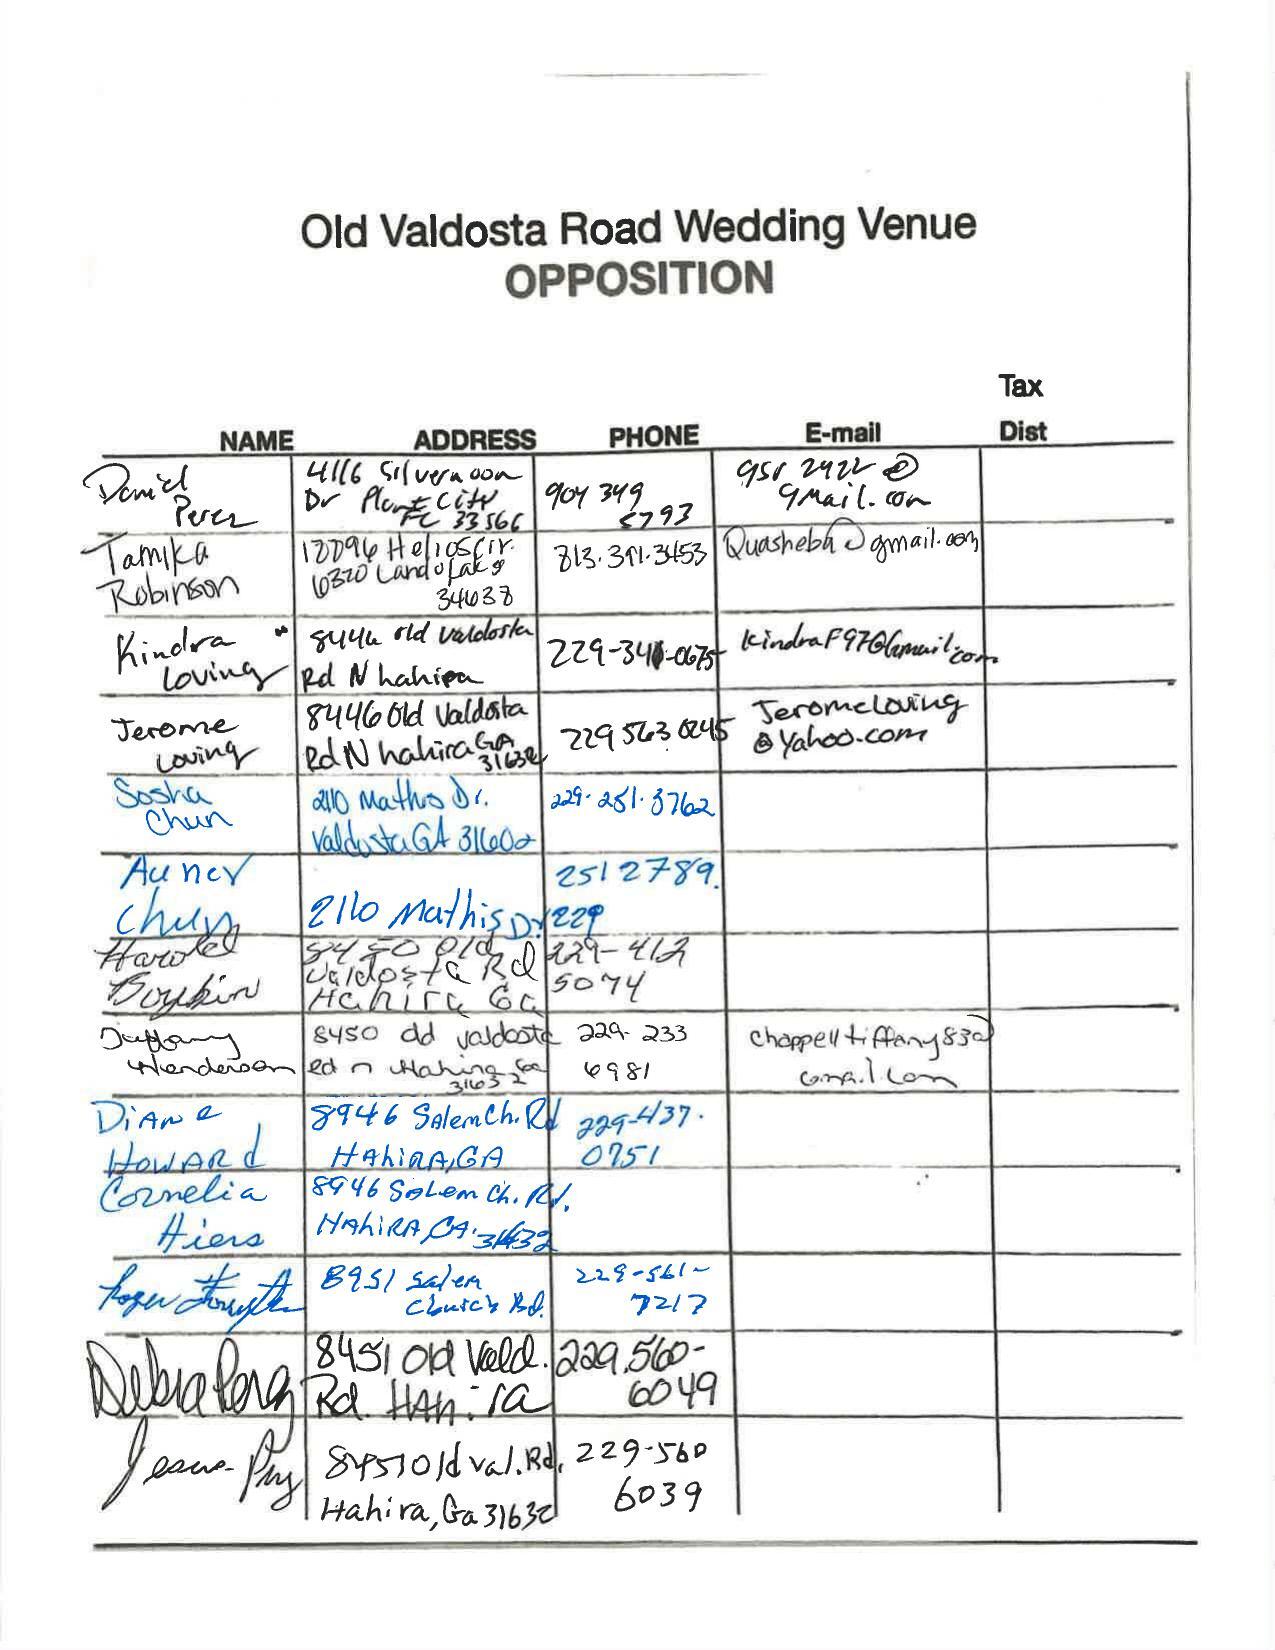 Old Valdosta Road Wedding Venue
OPPOSITION
Tax
NAME ADDRESS PHONE E-mail Dist
Daniel 4116 Silvermoon 951 2422 @
Perez Dr Plant City 904 349 gmail.com
FL 33566 5793
Tamika Helios Cir. 813.391.3453 Quasheba@gmail.com
Robinson Land o Lakes
34638
Kindra 8446 old Valdosta 229-341-0675 KindraF97@Gmail.com
Loving Rd N hahira
Jerome 8446 Old Valdosta 229 563 0245 JeromeLoving
Loving Rd N hahira GA @Yahoo.com
31632
Sosha 2110 Mathis Dr. 229-251-3762
Chun Valdosta GA 31602
Auncy 251 2789.
Chun 2110 Mathis Dr 229
Harold 8450 Old 229-412
Boykin Valdosta Rd 5074
Hahira Ga
8450 old valdosta 229-233 chappelltiffany83@
Henderson Rd n Hahira Ga 6981 gmail.com
31632
DiAne 8946 Salem Ch. Rd 229-437-
HOWARd HAhiRA, GA 0751
Cornelia 8946 Salem Ch. Rd.
Hiers HAhiRA, GA. 31632
Roger Forsyth 8951 Salem 229-561-
Church Rd. 7217
Debra Perez 8451 Old Vald. 229.560-
Rd. HAhira 6049
8451 Old Val. Rd, 229-560
Hahira, Ga 31632 6039